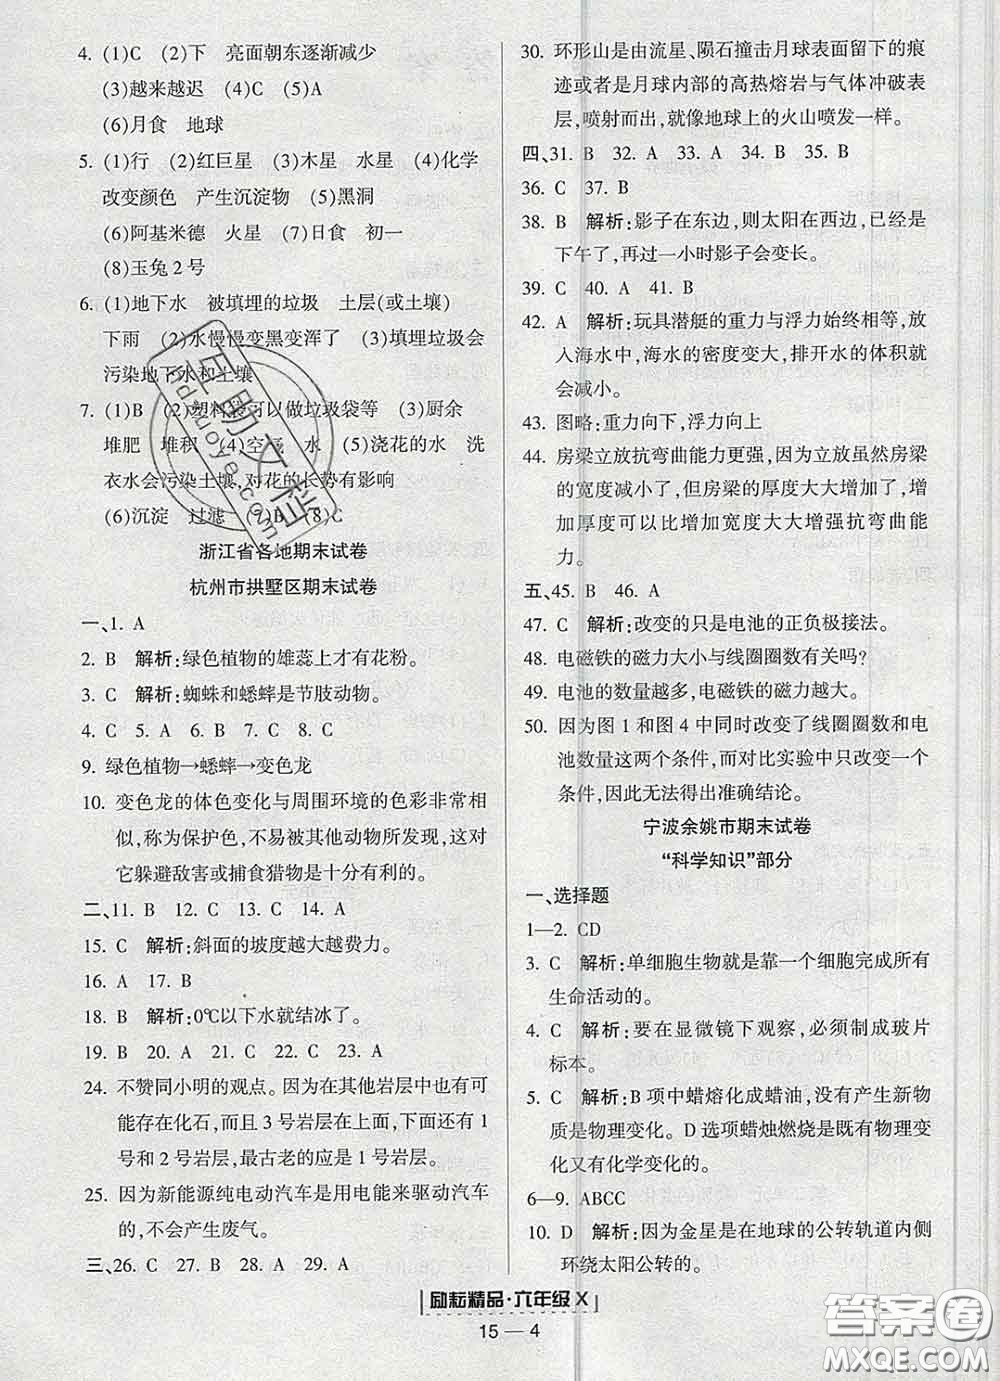 4. (1)C (2)下 亮面朝东逐渐减少
(3)越来越迟 (4)C (5)A
(6)月食 地球
5. (1)行 (2)红巨星 (3)木星 水星 (4)化学
改变颜色 产生沉淀物 (5)黑洞
(6)阿基米德 火星 (7)日食 初一
(8)玉兔2号
6. (1)地下水 被填埋的垃圾 土层(或土壤)
下雨 (2)水慢慢变黑变浑了 (3)填埋垃圾会
污染地下水和土壤
7. (1)B (2)塑料袋可以做垃圾袋等 (3)厨余
堆肥 堆积 (4)空气 水 (5)浇花的水 洗
衣水会污染土壤,对花的长势有影响
(6)沉淀 过滤 (7)A (8)C
浙江省各地期末试卷
杭州市拱墅区期末试卷
一、1. A
2. B 解析:绿色植物的雄蕊上才有花粉。
3. C 解析:蜘蛛和蟋蟀是节肢动物。
4. C 5. C 6. A 7. C 8. C
9. 绿色植物→蟋蟀→变色龙
10. 变色龙的体色变化与周围环境的色彩非常相
似,称为保护色,不易被其他动物所发现,这对
它躲避敌害或捕食猎物是十分有利的。
二、11. B 12. C 13. C 14. A
15. C 解析:斜面的坡度越大越费力。
16. A 17. B
18. B 解析:0℃以下水就结冰了。
19. B 20. A 21. C 22. C 23. A
24. 不赞同小明的观点。因为在其他岩层中也有可
能存在化石,而且3号岩层在上面,下面还有1
号和2号岩层,最古老的应该是1号岩层。
25. 因为新能源纯电动汽车是用电能来驱动汽车
的,不会产生废气。
三、26. C 27. B 28. A 29. A
30. 环形山是由流星、陨石撞击月球表面留下的痕
迹或者是月球内部的高热熔岩与气体冲破表
层,喷射而出,就像地球上的火山喷发一样。
四、31. B 32. A 33. A 34. B 35. B
36. C 37. B
38. B 解析:影子在东边,则太阳在西边,已经是
下午了,再过一小时影子会变长。
39. C 40. A 41. B
42. A 解析:玩具潜艇的重力与浮力始终相等,放
入海水中,海水的密度变大,排开水的体积就
会减小。
43. 图略:重力向下,浮力向上
44. 房梁立放抗弯曲能力更强,因为立放虽然房梁
的宽度减小了,但房梁的厚度大大增加了,增
加厚度可以比增加宽度大大增强抗弯曲能
力。
五、45. B 46. A
47. C 解析:改变的只是电池的正负极接法。
48. 电磁铁的磁力大小与线圈圈数有关吗?
49. 电池的数量越多,电磁铁的磁力越大。
50. 因为图1和图4中同时改变了线圈圈数和电
池数量这两个条件,而对比实验中只改变一个
条件,因此无法得出准确结论。
宁波余姚市期末试卷
“科学知识”部分
一、选择题
1—2. CD
3. C 解析:单细胞生物就是靠一个细胞完成所有
生命活动的。
4. C 解析:要在显微镜下观察,必须制成玻片
标本。
5. C 解析:B项中蜡熔化成蜡油,没有产生新物
质是物理变化。D选项蜡烛燃烧是既有物理变
化又有化学变化的。
6—9. ABCC
10. D 解析:因为金星是在地球的公转轨道内侧
环绕太阳公转的。
励耘精品·六年级X
15 — 4
互助文档
答案圈
MXQE.COM